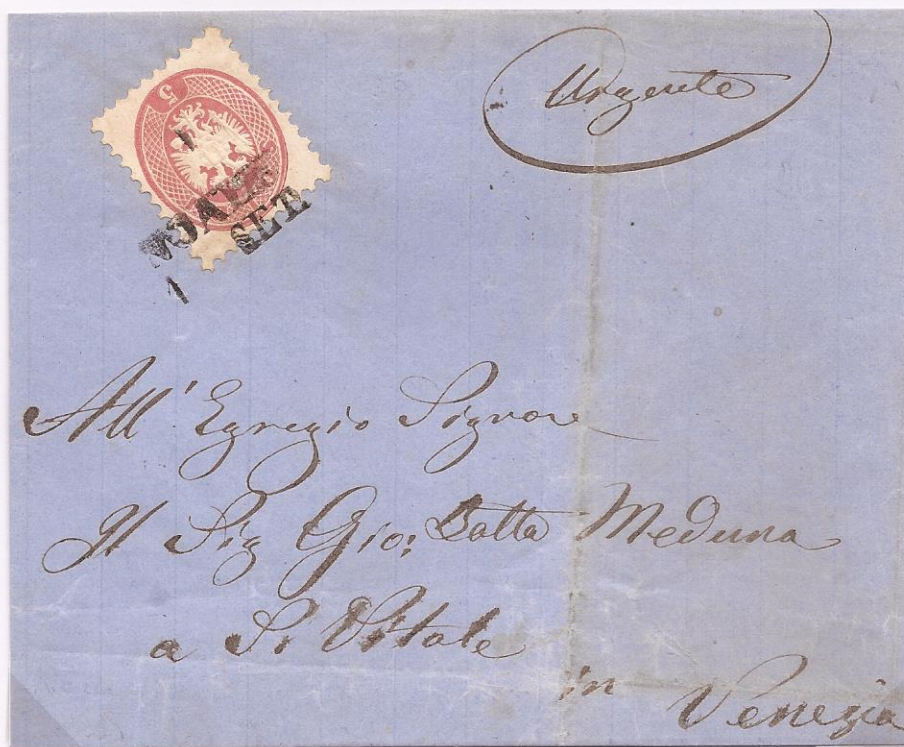 Urgente
5
NOALE
1 SET.
All' Egregio Signore
Il Sig Gio: Batta Meduna
a S. Vitale
in Venezia